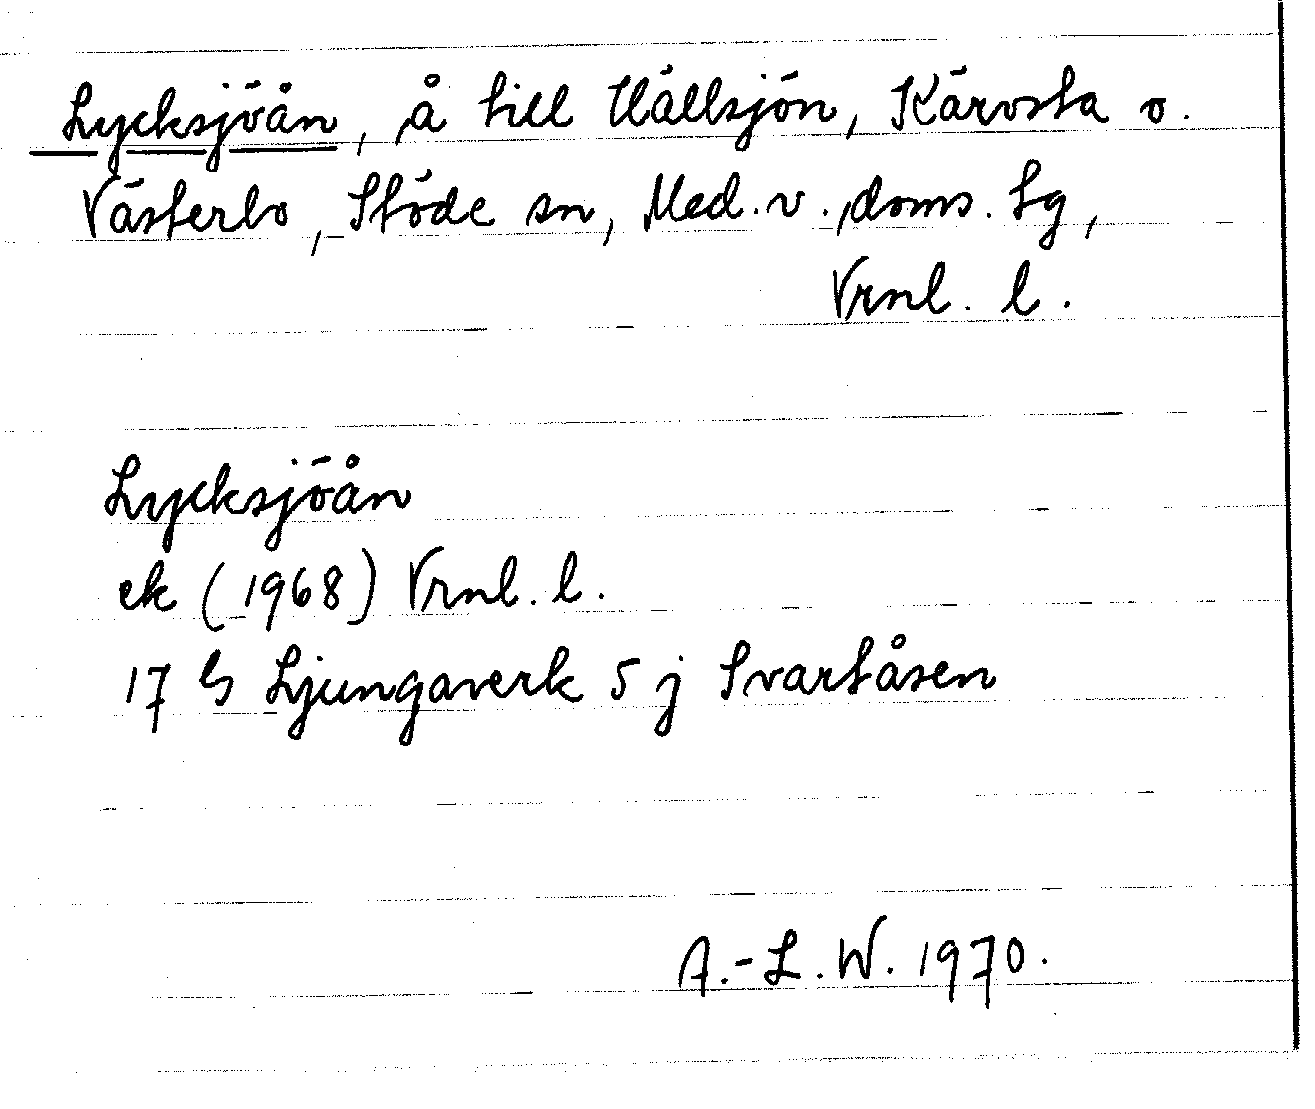 Lycksjöån, å till Hällsjön, Kärvsta o.
Västerbo, Stöde sn, Med. v., doms. tg,
Vrnl. l.
Lycksjöån
ek (1968) Vrnl. l.
17 G Ljungaverk 5 j Svartåsen
A.-L. W. 1970.